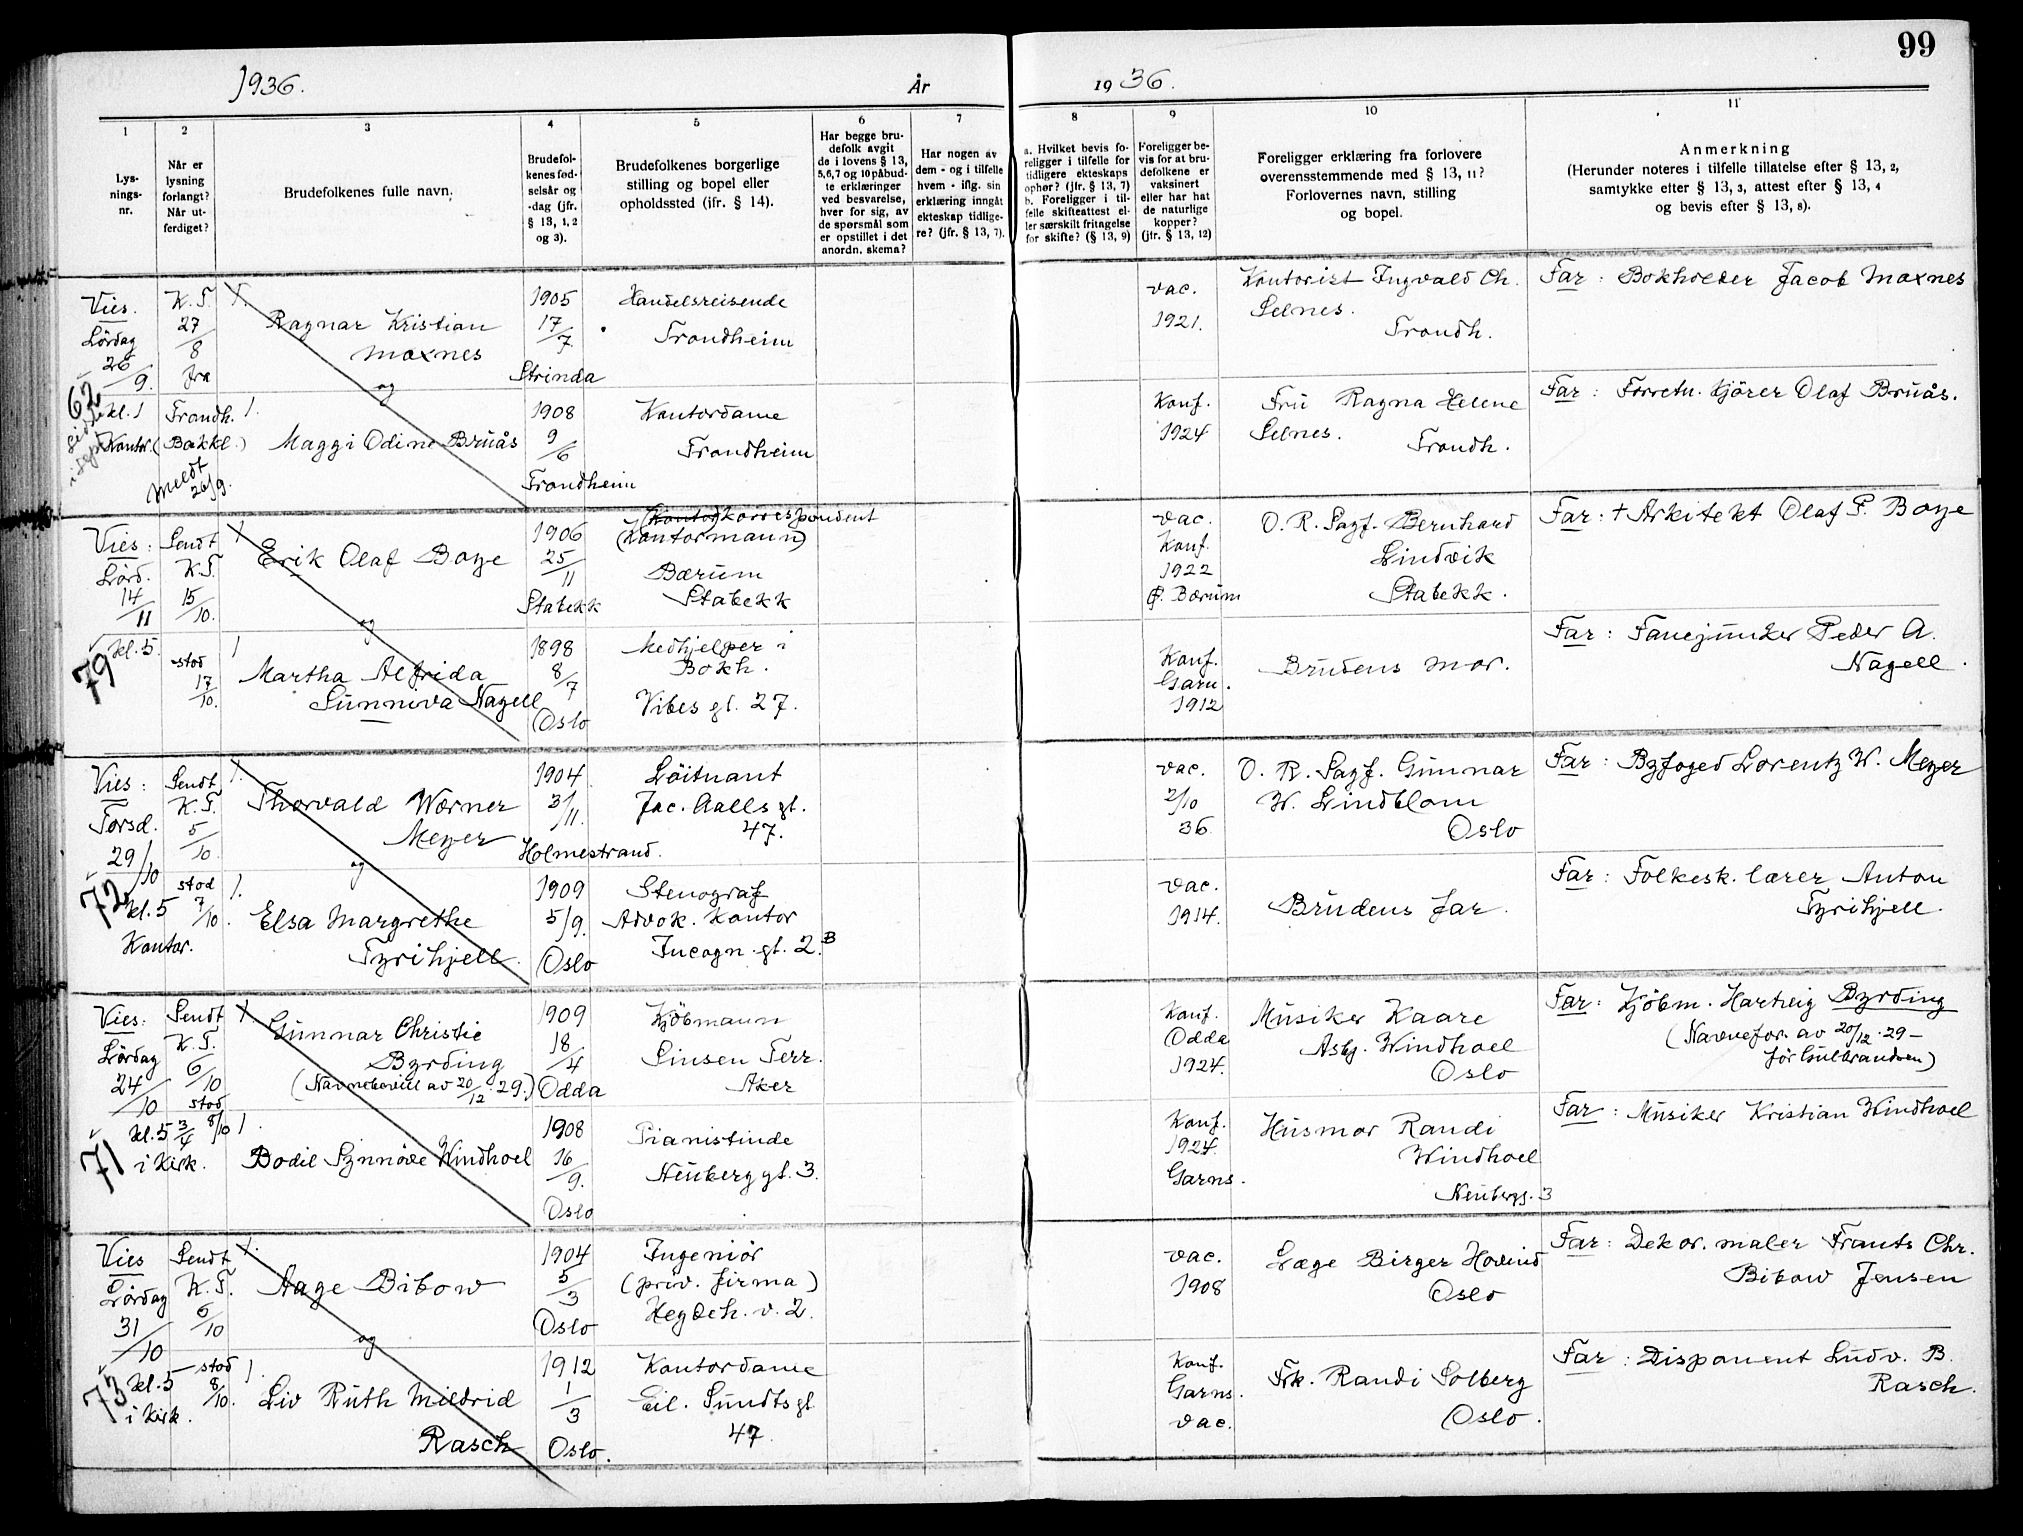 99
1936.
År
19 36.
1
2
3
4
5
6
7
8
9
10
11
Lys-
nings-
nr.
Når er
lysning
forlangt?
Når ut-
ferdiget?
Brudefolkenes fulle navn.
Brudefol-
kenes fød-
selsår og
-dag (jfr.
§ 13, 1, 2
og 3).
Brudefolkenes borgerlige
stilling og bopel eller
opholdssted (ifr. § 14).
Har begge bru-
defolk avgit
de i lovens § 13,
5,6,7 og 10 påbud-
te erklæringer
ved besvarelse,
hver for sig, av
de spørsmål som
er opstillet i det
anordn. skema?
Har nogen av
dem - og i tilfelle
hvem - iflg. sin
erklæring inngåt
ekteskap tidlige-
re? (jfr. § 13, 7).
a. Hvilket bevis fo-
religger i tilfelle for
tidligere ekteskaps
ophør? (jfr. § 13, 7)
b. Foreligger i til-
felle skifteattest el-
ler særskilt fritagelse
for skifte? (§ 13, 9)
Foreligger be-
vis for at bru-
defolkene er
vaksinert
eller har hat
de naturlige
kopper?
(jfr. § 13, 12)
Foreligger erklæring fra forlovere
overensstemmende med § 13, 11?
Forlovernes navn, stilling
og bopel.
Anmerkning
(Herunder noteres i tilfelle tillatelse efter § 13, 2,
samtykke efter § 13, 3, attest efter § 13, 4
og bevis efter § 13, 8).
Vies.
Lördag
26/9.
62
kl. 1
Kontor.
K. T.
27/8
fra
Trondh.
(Bakkl.)
meldt
26/9.
1.
Ragnar Kristian
Moxnes
og
1.
Maggi Odine Bruås
1905
17/7.
Strinda
1908
9/6
Trondheim
Handelsreisende
Trondheim
Kontordame
Trondheim
vac.
1921.
Konf.
1924
Kontorist Ingvald Ch.
Selnes.
Trondh.
Fru Ragna Helene
Selnes.
Trondh.
Far: Bokholder Jacob Moxnes
Far: Forretn. kjörer Olaf Bruås.
Vies:
Lörd.
14/11
kl. 5.
79
Sendt
K. T.
15/10.
stod
17/10.
1
Erik Olaf Boye
og
1
Martha Alfrida
Sunniva Nagell
1906
25/11
Stabekk
1898
8/7
Oslo
(Kontor)korrespondent
(Kontormann)
Bærum
Stabekk
Medhjelper i
Bokh.
Vibes gt. 27.
vac.
Konf.
1922
Ö. Bærum
Konf.
Garn.
1912
O. R. Sagf. Bernhard
Lindvik
Stabekk.
Brudens mor.
Far: + Arkitekt Olaf P. Boye
Far: Fanejunker Peder A.
Nagell.
Vies:
Torsd.
29/10
72
kl. 5
Kontor.
Sendt
K. T.
5/10
stod
7/10.
1.
Thorvald Wærner
Meyer
og
1.
Elsa Margrethe
Tyrihjell.
1904
3/11.
Holmestrand.
1909
5/9.
Oslo
Löitnant
Jac. Aalls gt.
47.
Stenograf
Advok. kontor
Incogn. gt. 2.B
vac.
2/10
36
vac.
1914.
O. R. Sagf. Gunnar
W. Lindblom
Oslo
Brudens far.
Far: Byfoged Lorentz W. Meyer
Far: Folkesk. lærer Anton
Tyrihjell.
Vies:
Lördag
24/10
kl. 5 3/4
71
i kirk.
Sendt
K. T.
6/10
stod
8/10
1.
Gunnar Christie
Byrding
(Navnebevill av 20/12.29.)
1.
Bodil Synnöve Windhoel
1909
18/4
Odda
1908
16/9.
Oslo
Kjöbmann
Sinsen Terr.
Aker
Pianistinde
Neuberg gt. 3.
Konf.
Odda
1924.
Konf.
1924.
Garns.
Musiker Kaare
Asbj. Windhoel
Oslo
Husmor Randi
Windhoel
Neubergs. 3
Far: Kjöbm. Hartvig Byrding
(Navnefor. av 20/12.29 -
för Gulbrandsen)
Far: Musiker Kristian Windhoel
Vies
Lördag
31/10
kl. 5
73
i kirk.
Sendt
K. T.
6/10
stod
8/10.
1.
Aage Bibow
og
1.
Liv Ruth Mildrid
Rasch
1904
5/3
Oslo
1912
1/3
Oslo.
Ingeniör
(priv. firma)
Hegdeh. v. 2.
Kontordame
Eil. Sundts gt
47.
vac.
1908
Konf.
Garns.
vac.
Læge Birger Hovind
Oslo
Frk. Randi Solberg
Oslo.
Far: Dekor. maler Frants Chr.
Bibow Jensen
Far: Disponent Ludv. B.
Rasch.